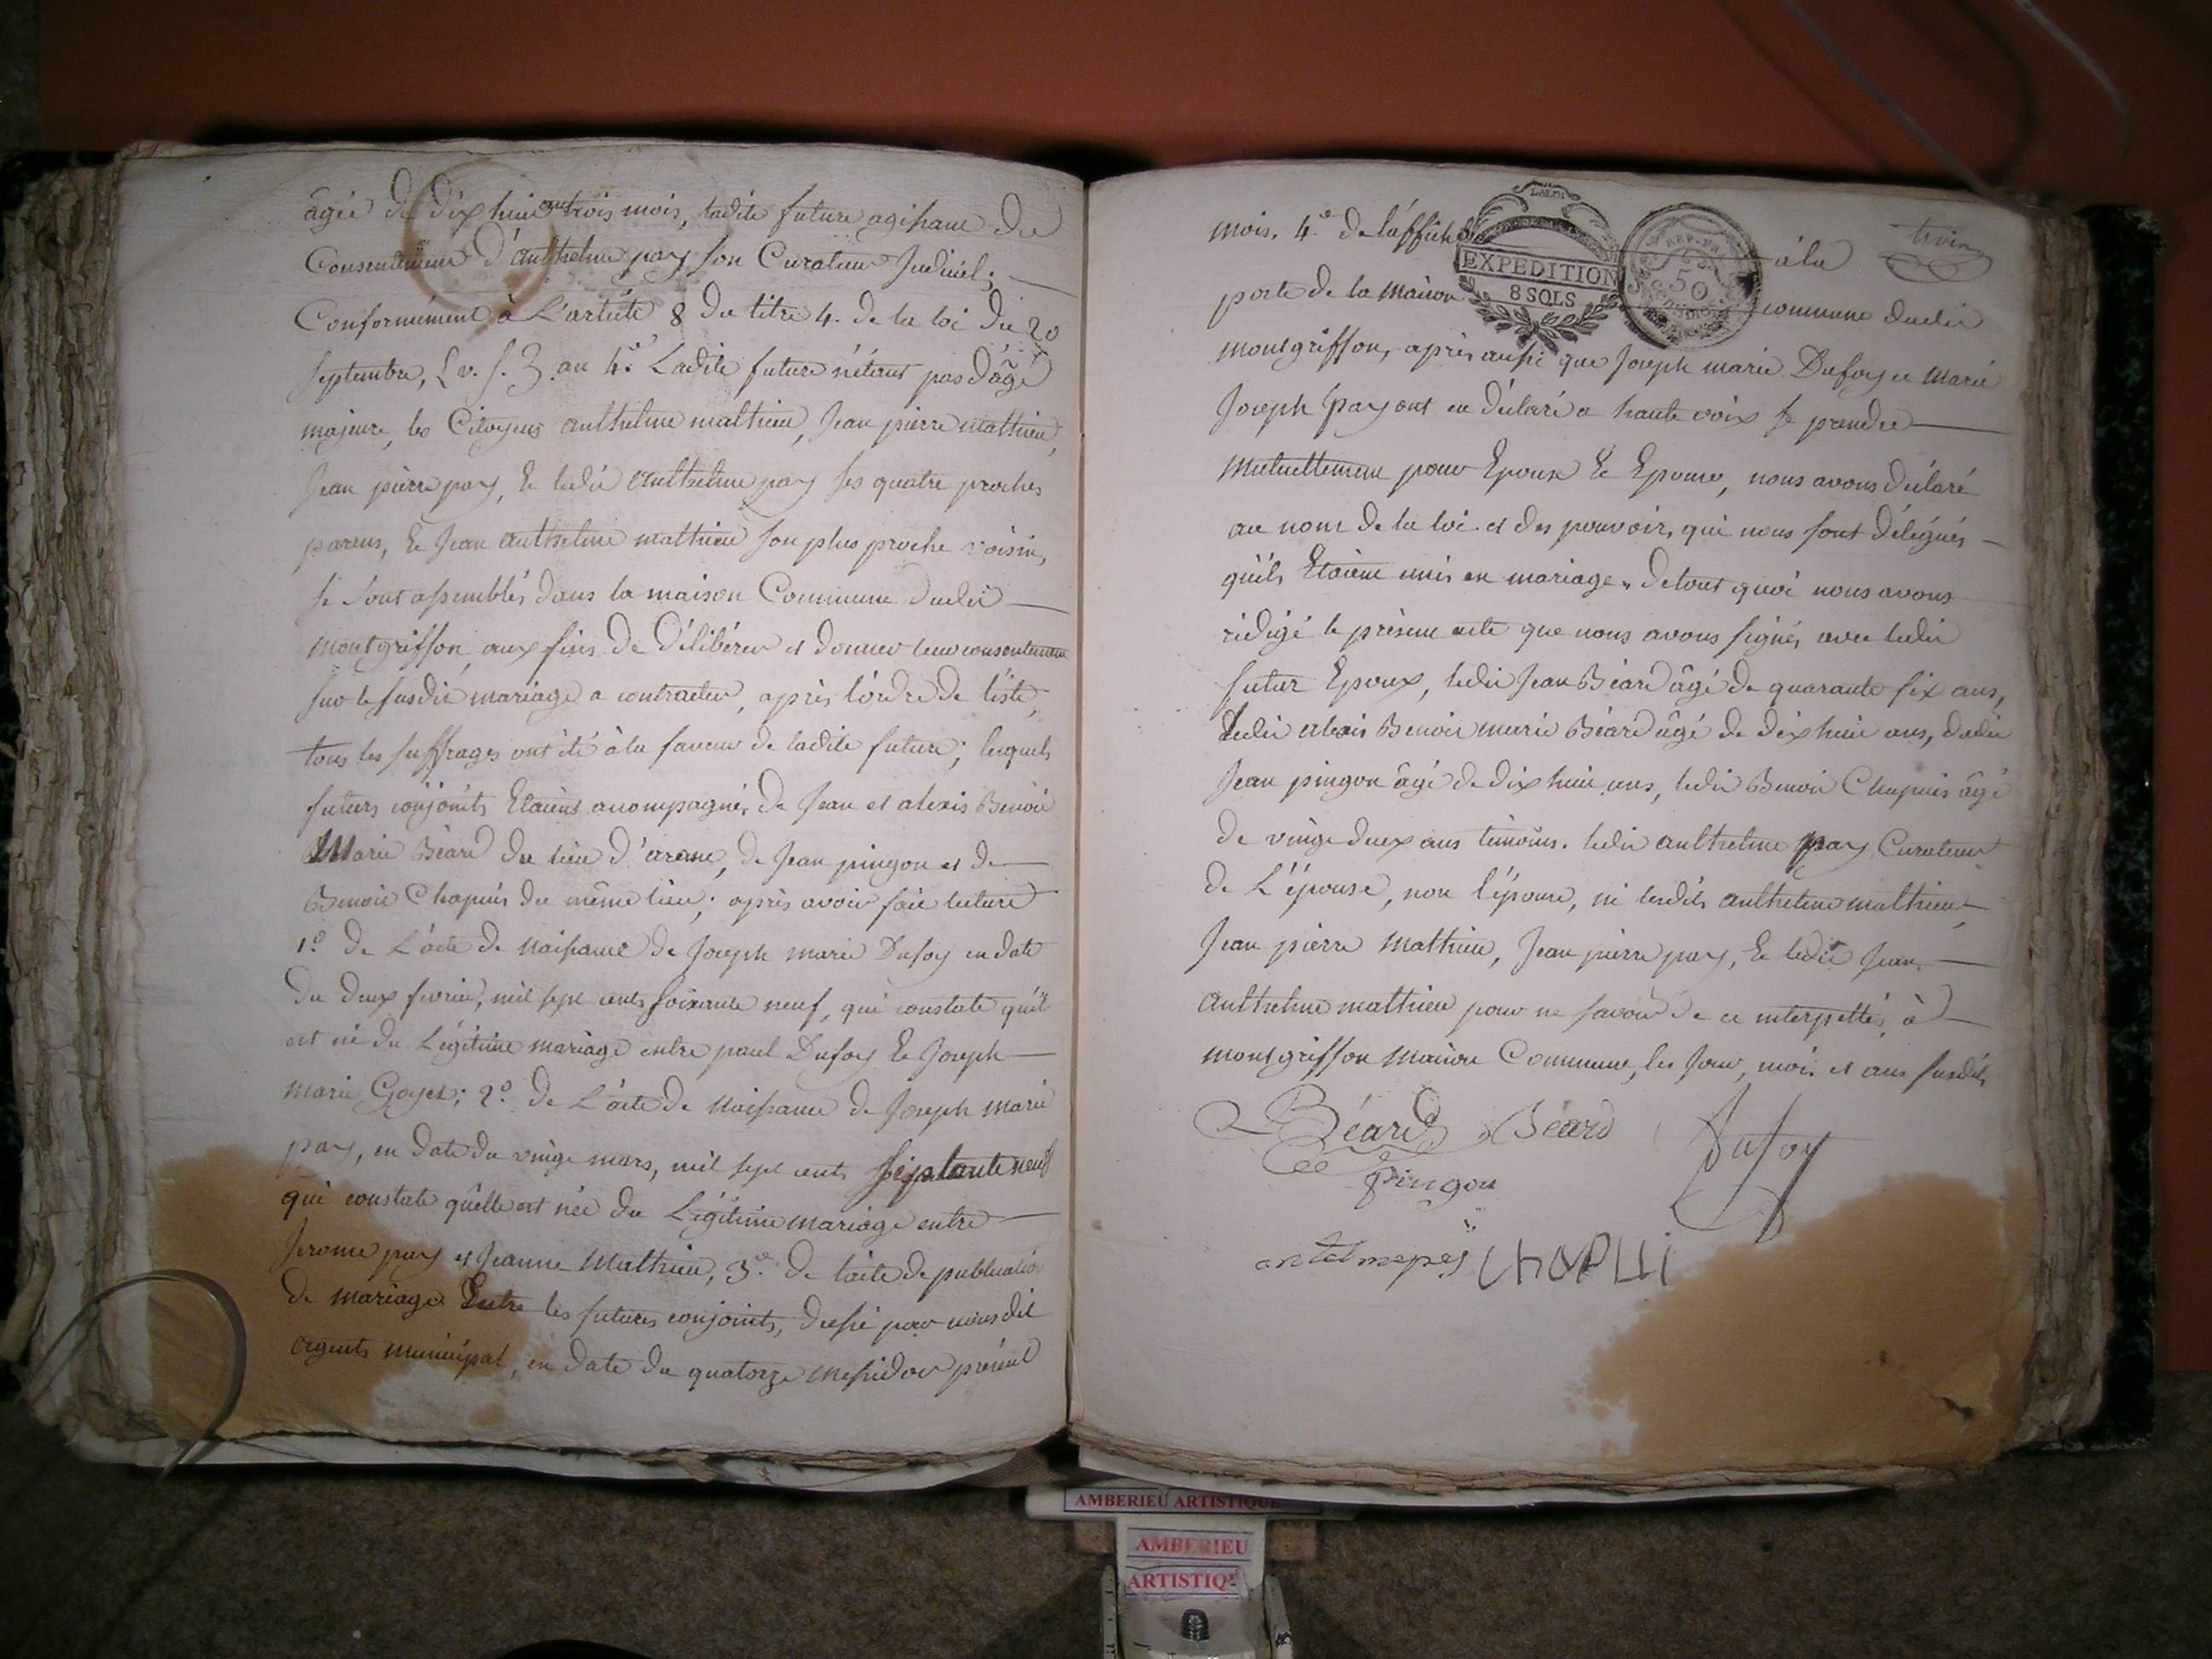 âgée de dix huit ans trois mois, ladite future agissant du
Consentement d'anthelme pay son Curateur Judiciel;
Conformément à L'article 8 du titre 4. de la loi du 20
septembre, an 4e. Ladite future n'étant pas d'âge
majeure, les Citoyens anthelme mathieu, Jean pierre mathieu,
Jean pierre pay, & ledit anthelme pay ses quatre proches
parens, & Jean anthelme mathieu son plus proche voisin,
se sont assemblés dans la maison Commune dudit
montgriffon, aux fins de délibérer et donner leur consentement
sur le susdit mariage a contracter, après l'ordre de liste,
tous les suffrages ont été à la faveur de ladite future; lesquels
futurs conjoints Etaient acompagnés de Jean et alexis Benoit
Marie Béard du lieu d'arane, de Jean pingon et de
Benoit Chapuis du même lieu; après avoir fait lecture
1.º de L'acte de Naissance de Joseph marie Dufoy en date
du deux fevrier, mil sept cents soixante neuf, qui constate qu'il
est né du Légitime mariage entre paul Dufoy & Joseph
marie Goyet; 2.º de L'acte de Naissance de Joseph Marie
pay, en date du vingt mars, mil sept cents septante neuf
qui constate qu'elle est née du Légitime mariage entre
Jerome pay et Jeanne Mathieu, 3.e de l'acte de publication
de mariage Entre les futurs conjoints, dressé par nous dit
agents municipal, en date du quatorze messidor présent
mois. 4.e de l'affiche à la
LA LOI
EXPEDITION
8 SOLS
REP. FRA
50
porte de la Maison commune dudit
montgriffon, après aussi que Joseph marie Dufoy et Marie
Joseph pay ont eu déclaré a haute voix se prendre
Mutuellement pour Epoux & Epouse, nous avons déclaré
au nom de la loi et des pouvoirs qui nous sont délégués
qu'ils Etaient unis en mariage. de tout quoi nous avons
rédigé le présent acte que nous avons signés avec ledit
futur Epoux, ledit Jean Béard âgé de quarante six ans,
Ledit alexis Benoit marie Béard âgé de dix huit ans, dudit
Jean pingon âgé de dix huit ans, ledit Benoit Chapuis âgé
de vingt deux ans témoins. ledit anthelme pay Curateur
de L'épouse, non l'épouse, ni lesdits anthelme mathieu,
Jean pierre Mathieu, Jean pierre pay, & ledit Jean
Anthelme mathieu pour ne savoir de ce interpellés à
montgriffon Maison Commune, les Jour, mois et ans susdits
Béard Béard Dufoy
pingon
antelmepey CHAPUI
AMBERIEU ARTISTIQUE
AMBERIEU
ARTISTIQ